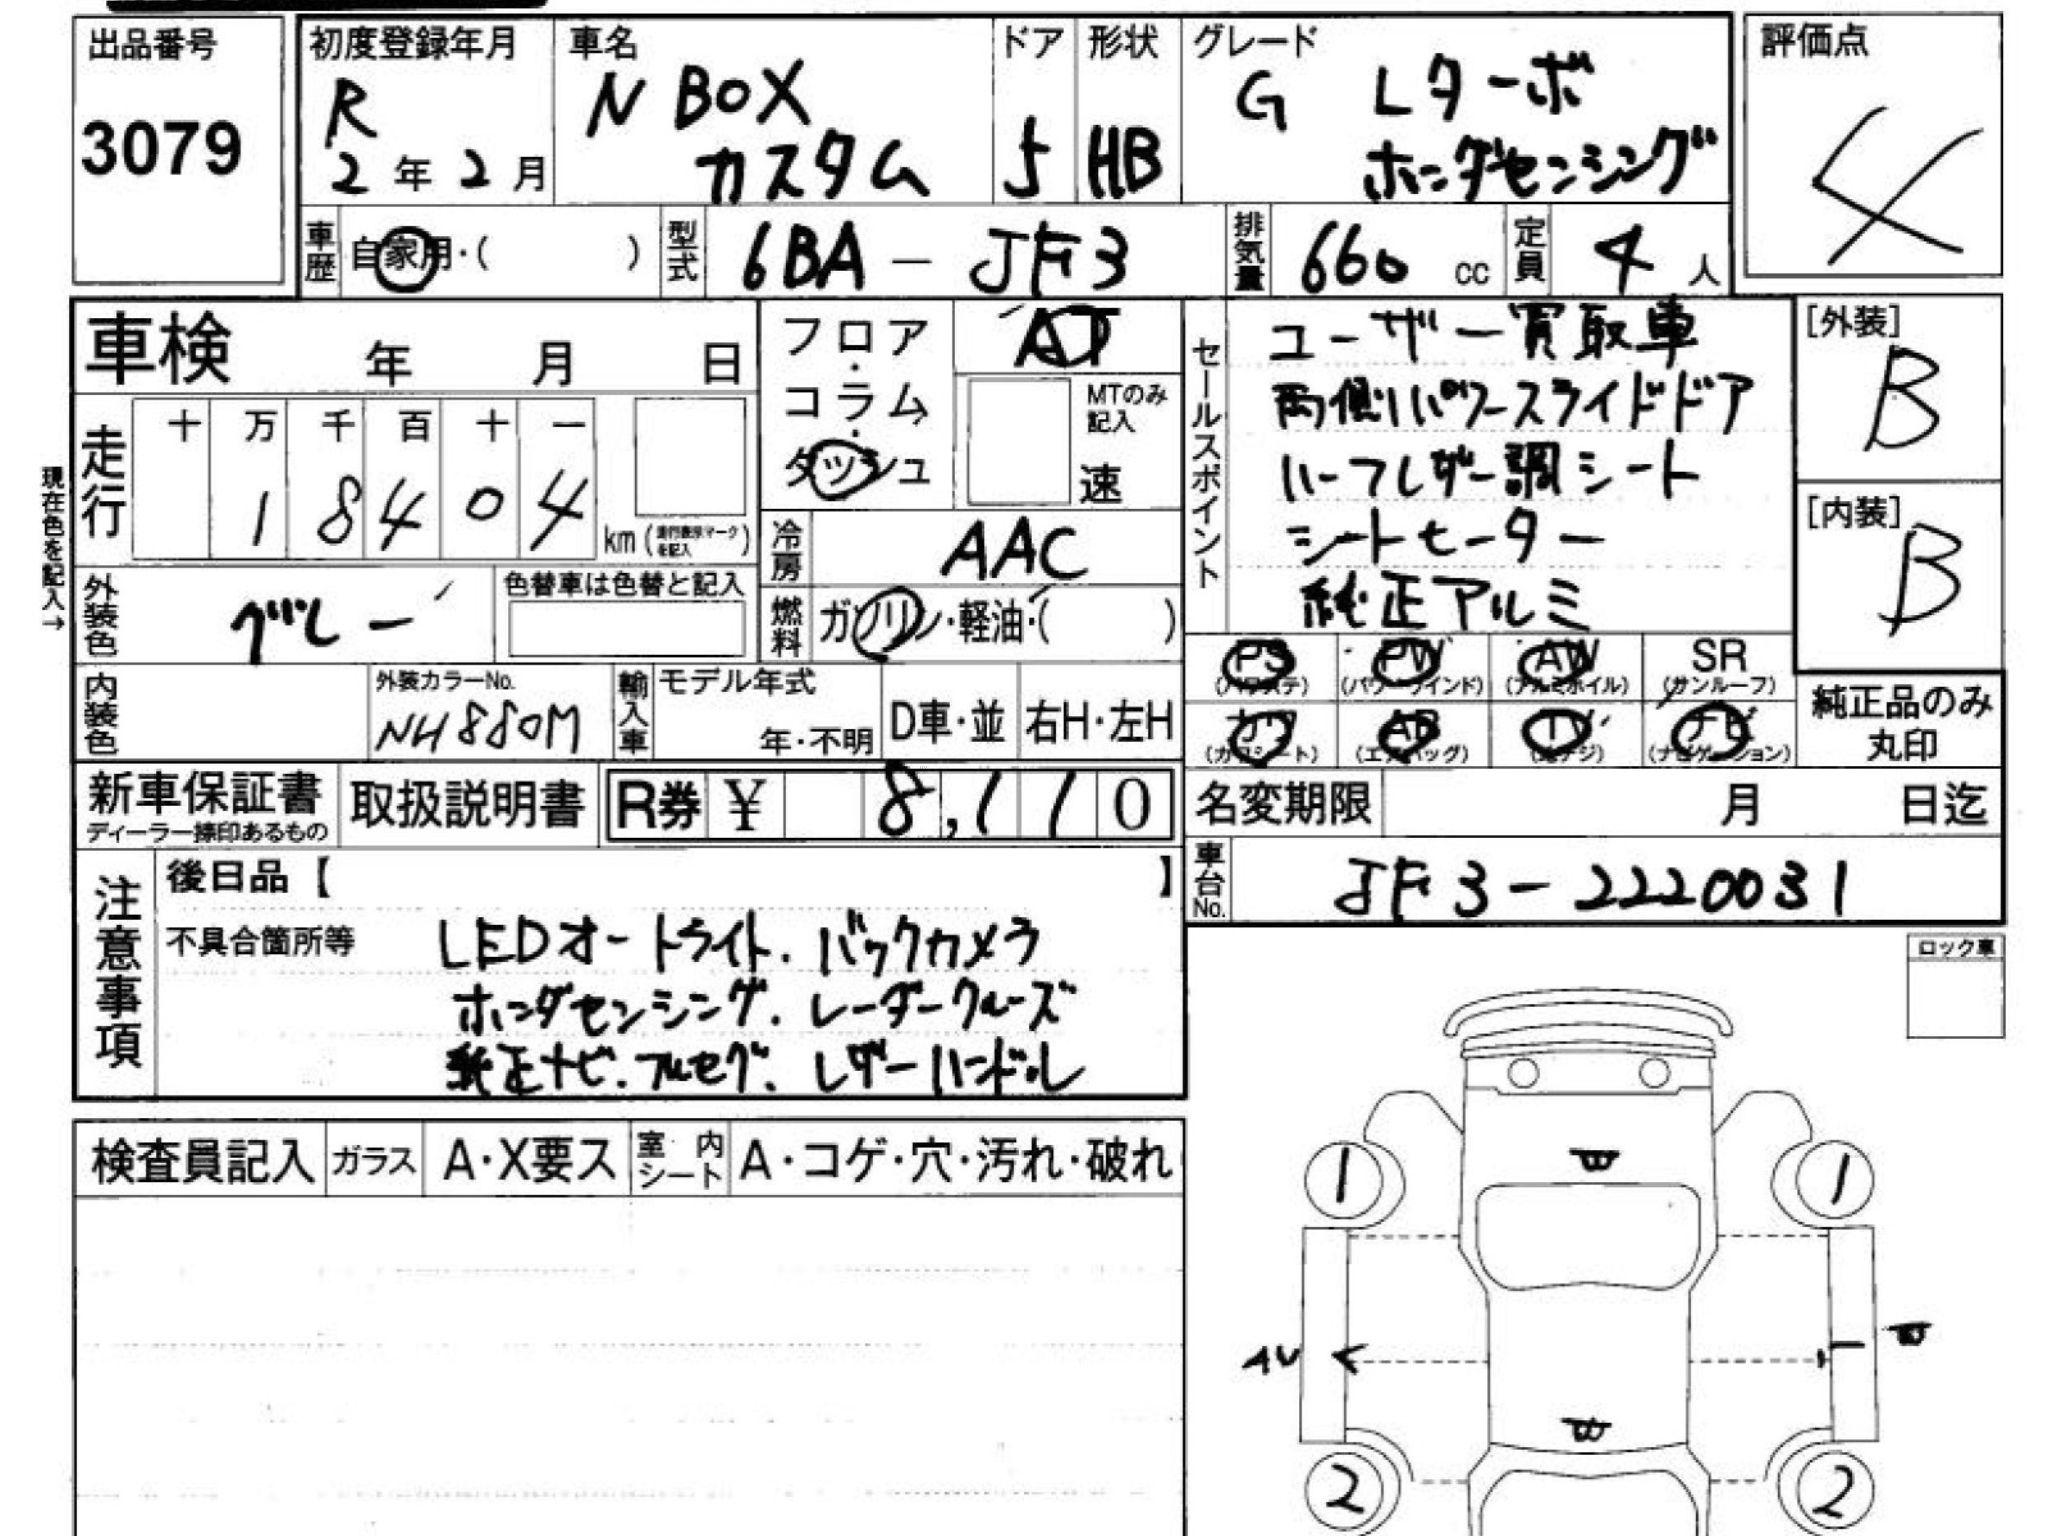 出品番号
3079
初度登録年月
R
2年2月
車名
N BOX
カスタム
ドア
5
形状
HB
グレード
G Lターボ
ホンダセンシング
評価点
4
車歴
自家用・( )
型式
6BA-JF3
排気量
660 cc
定員
4人
車検 年 月 日
フロア・コラム・ダッシュ
AT
MTのみ記入
速
セールスポイント
ユーザー買取車
両側パワースライドドア
ハーフレザー調シート
シートヒーター
純正アルミ
[外装]
B
[内装]
B
現在色を記入→
走行
十 万 千 百 十 一
1 8 4 0 4
km(走行表示マークを記入)
冷房
AAC
外装色
グレー
色替車は色替と記入
燃料
ガソリン・軽油・( )
内装色
外装カラーNo.
NH880M
輸入車
モデル年式
年・不明
D車・並
右H・左H
PS
(パワステ)
PW
(パワーウインド)
AW
(アルミホイル)
SR
(サンルーフ)
カワ
(カワシート)
AB
(エアバッグ)
TV
(アナ・デジ)
ナビ
(ナビゲーション)
純正品のみ
丸印
新車保証書
ディーラー捺印あるもの
取扱説明書
R券 ¥ 8,110
名変期限 月 日迄
車台No.
JF3-2220031
注意事項
後日品【 】
不具合箇所等
LEDオートライト.バックカメラ
ホンダセンシング.レーダークルーズ
純正ナビ.フルセグ.レザーハンドル
ロック車
検査員記入
ガラス
A・X要ス
室内シート
A・コゲ・穴・汚れ・破れ
1
1
AU
2
2